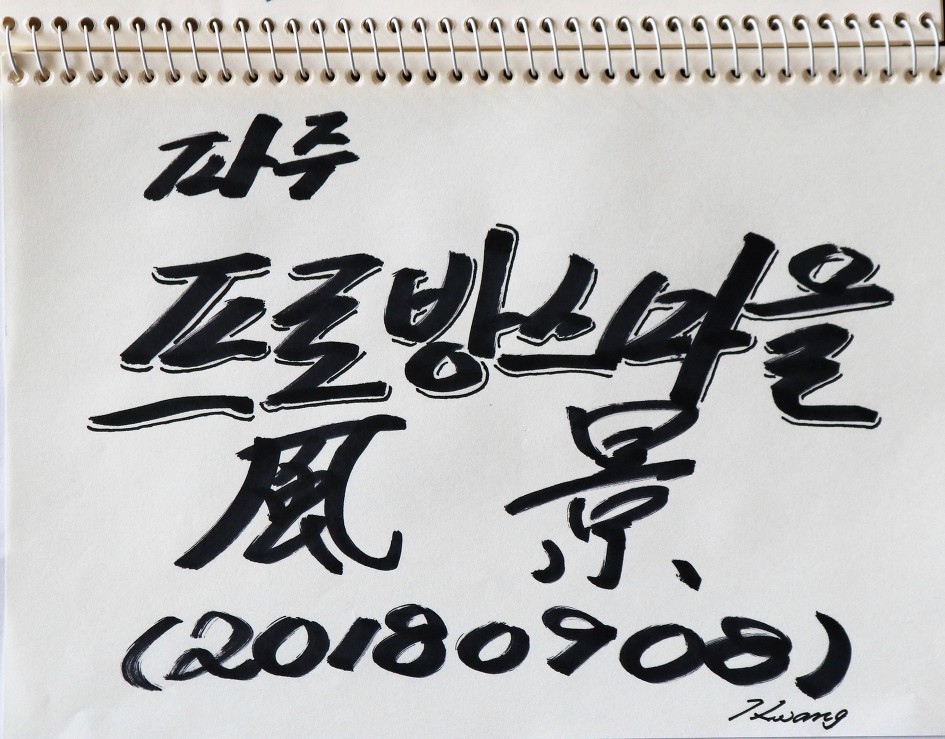 파주
프로방스마을
風景
(20180908)
Kwang